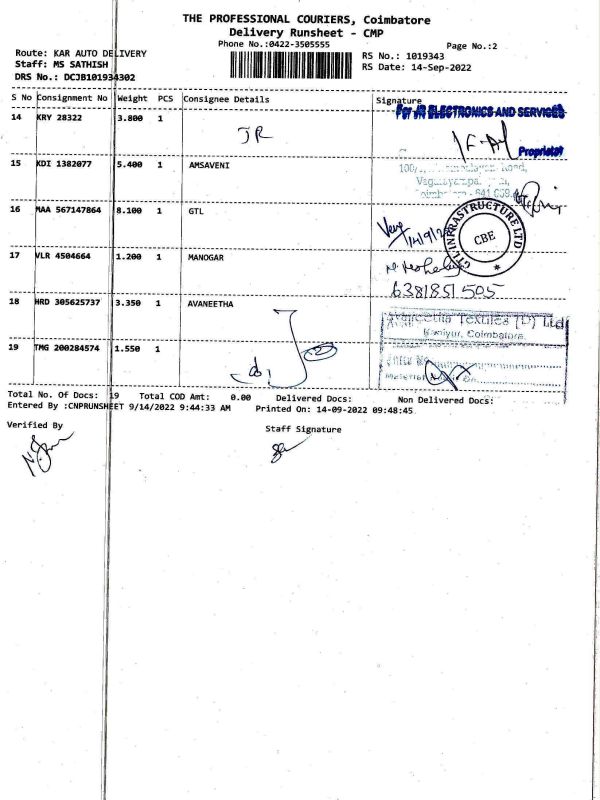 THE PROFESSIONAL COURIERS, Coimbatore
Delivery Runsheet - CMP
Phone No.:0422-3505555
Page No.:2
Route: KAR AUTO DELIVERY
RS No.: 1019343
Staff: MS SATHISH
RS Date: 14-Sep-2022
DRS No.: DCJB101934302
S No Consignment No Weight PCS Consignee Details Signature
For JR ELECTRONICS AND SERVICES
14 KRY 28322 3.800 1
JR
Proprietor
15 KDI 1382077 5.400 1 AMSAVENI
16 MAA 567147864 8.100 1 GTL
GTL INFRASTRUCTURE LTD
CBE
14/9/22
17 VLR 4504664 1.200 1 MANOGAR
6381851505
18 HRD 305625737 3.350 1 AVANEETHA
Avaneetha Textiles (P) Ltd
Kaniyur, Coimbatore.
19 TMG 200284574 1.550 1
Total No. Of Docs: 19 Total COD Amt: 0.00 Delivered Docs: Non Delivered Docs:
Entered By :CNPRUNSHEET 9/14/2022 9:44:33 AM Printed On: 14-09-2022 09:48:45
Verified By
Staff Signature